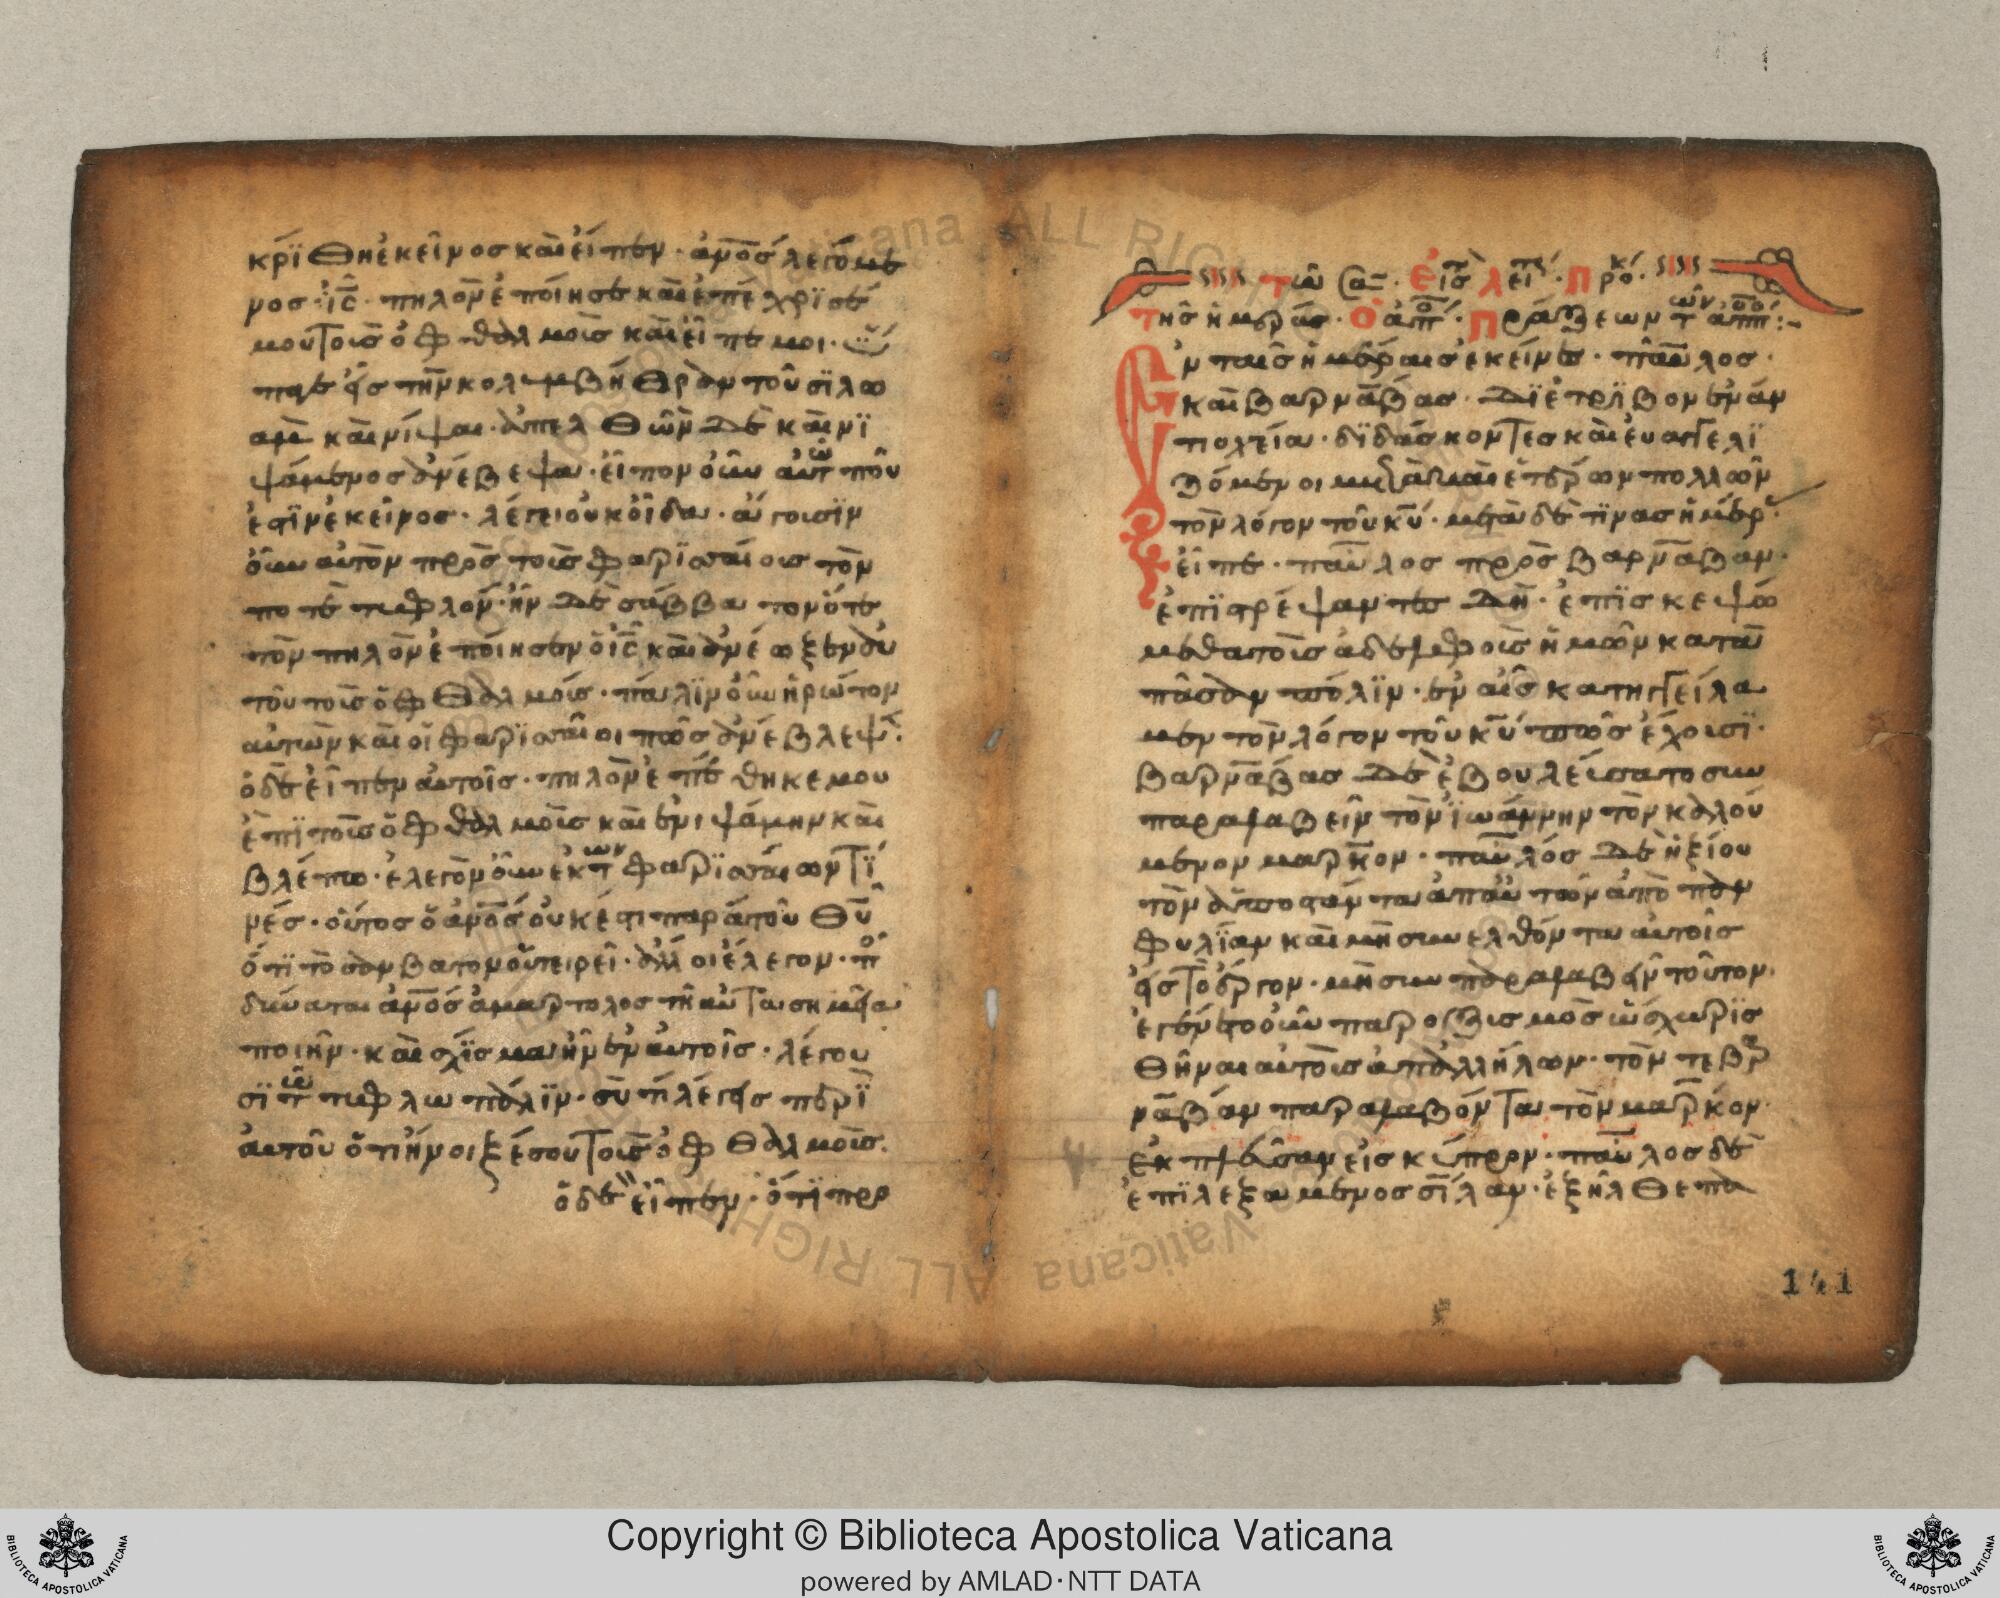 κρίθη ἐκεῖνος καὶ εἶπεν · ἀνο̅ς λεγόμε
νος ι̅ς · πηλὸν ἐποίησε καὶ ἐπέχρισέ
μου τοῖς ὀφθαλμοῖς καὶ εἶπέ μοι ·
εἰς τὴν κολυμβήθραν τοῦ σϊλω
ὰμ καὶ νίψαι · ἀπελθὼν δὲ καὶ νϊ
ψάμενος ἀνέβεψα · εἶπον οὖν αὐτῶ ποῦ
ἐστϊν ἐκεῖνος · λέγει οὐκ οἶδα · ἄγουσϊν
οὖν αὐτὸν πρὸς τοὺς φαρϊσαίους τὸν
ποτὲ τυφλόν · ἦν δὲ σάββατον ὅτε
τὸν πηλὸν ἐποίησεν ὁ ι̅ς καὶ ἀνέωξεν αὐ
τοῦ τοὺς ὀφθαλμούς · πάλϊν οὖν ἠρώτον
αὐτὸν καὶ οἱ φαρϊσαῖοι πῶς ἀνέβλεψ
ὁ δὲ εἶπεν αὐτοῖς · πηλὸν ἐπέθηκέ μου
ἐπῒ τοὺς ὀφθαλμοὺς καὶ ἐνιψάμην καὶ
βλέπω · ἔλεγον οὖν ἐκ τῶν φαρϊσαίων τϊ
νές · οὗτος ὁ ἀνο̅ς οὐκ ἔστι παρὰ τοῦ θυ̅
ὅτϊ τὸ σάμβατον οὐ τειρεῖ · ἄλλοι ἔλεγον · π
δύναται ἀνο̅ς ἁμαρτολὸς τηαῦτα σημεῖα
ποιῆν · καὶ σχΐσμα ἦν ἐν αὐτοῖς · λέγου
σϊ τῶ τυφλῶ πάλϊν · σὺ τί λέγεις περῒ
αὐτοῦ ὅτι ἤνοιξέ σου τοὺς ὀφθαλμούς
ὁ δὲ εἶπεν · ὅτϊ προ
τῶ σα · εἰς λειτ · προκ
τῆς ἡμέρας · ὁ ἀπο · πράξεων τῶν ἀπο
Ἐν ταῖς ἡμέραις ἐκείνες · παῦλος
καὶ βαρνάβας · δϊέτρϊβον ἐν ἀν
τιοχία · δϊδάσκοντες καὶ εὐαγγελϊ
ζόμενοι μετὰ καὶ ἑτέρων πολλῶν
τὸν λόγον τοῦ κυ̅ · μετὰ δὲ τϊνας ἡμέρ
εἶπε · παῦλος πρὸς βαρνάβαν
ἐπϊστρέψαντες δὴ · ἐπϊσκεψώ
μεθα τοὺς ἀδελφοὺς ἡμῶν κατὰ
πᾶσαν πόλϊν · ἐν αἷς κατηγγείλα
μεν τὸν λόγον τοῦ κυ̅ πῶς ἔχουσϊ ·
βαρνάβας δὲ ἐβουλεύσατο συν
παραλαβεῖν τὸν ϊωάννην τὸν καλού
μενον μάρκον · παῦλος δὲ ἠξίου
τὸν ἀποστάντα ἀπ αὐτῶν ἀπὸ παν
φυλΐαν καὶ μὴ συνελθόντα αὐτοῖς
εἰς τὸ ἔργον · μὴ συνπαραλαβεῖν τοῦτον
ἐγένετο οὖν παροξυσμὸς ὥς χωρϊσ
θῆναι αὐτοὺς ἀπ ἀλλήλων · τόν τε βαρ
νάβαν παραλαβόντα τὸν μάρκον
ἐκπλεῦσαι εἰς κύπρον · παῦλος δὲ
ἐπϊλεξάμενος σΐλαν · ἐξῆλθε πα
141
Copyright © Biblioteca Apostolica Vaticana
powered by AMLAD·NTT DATA